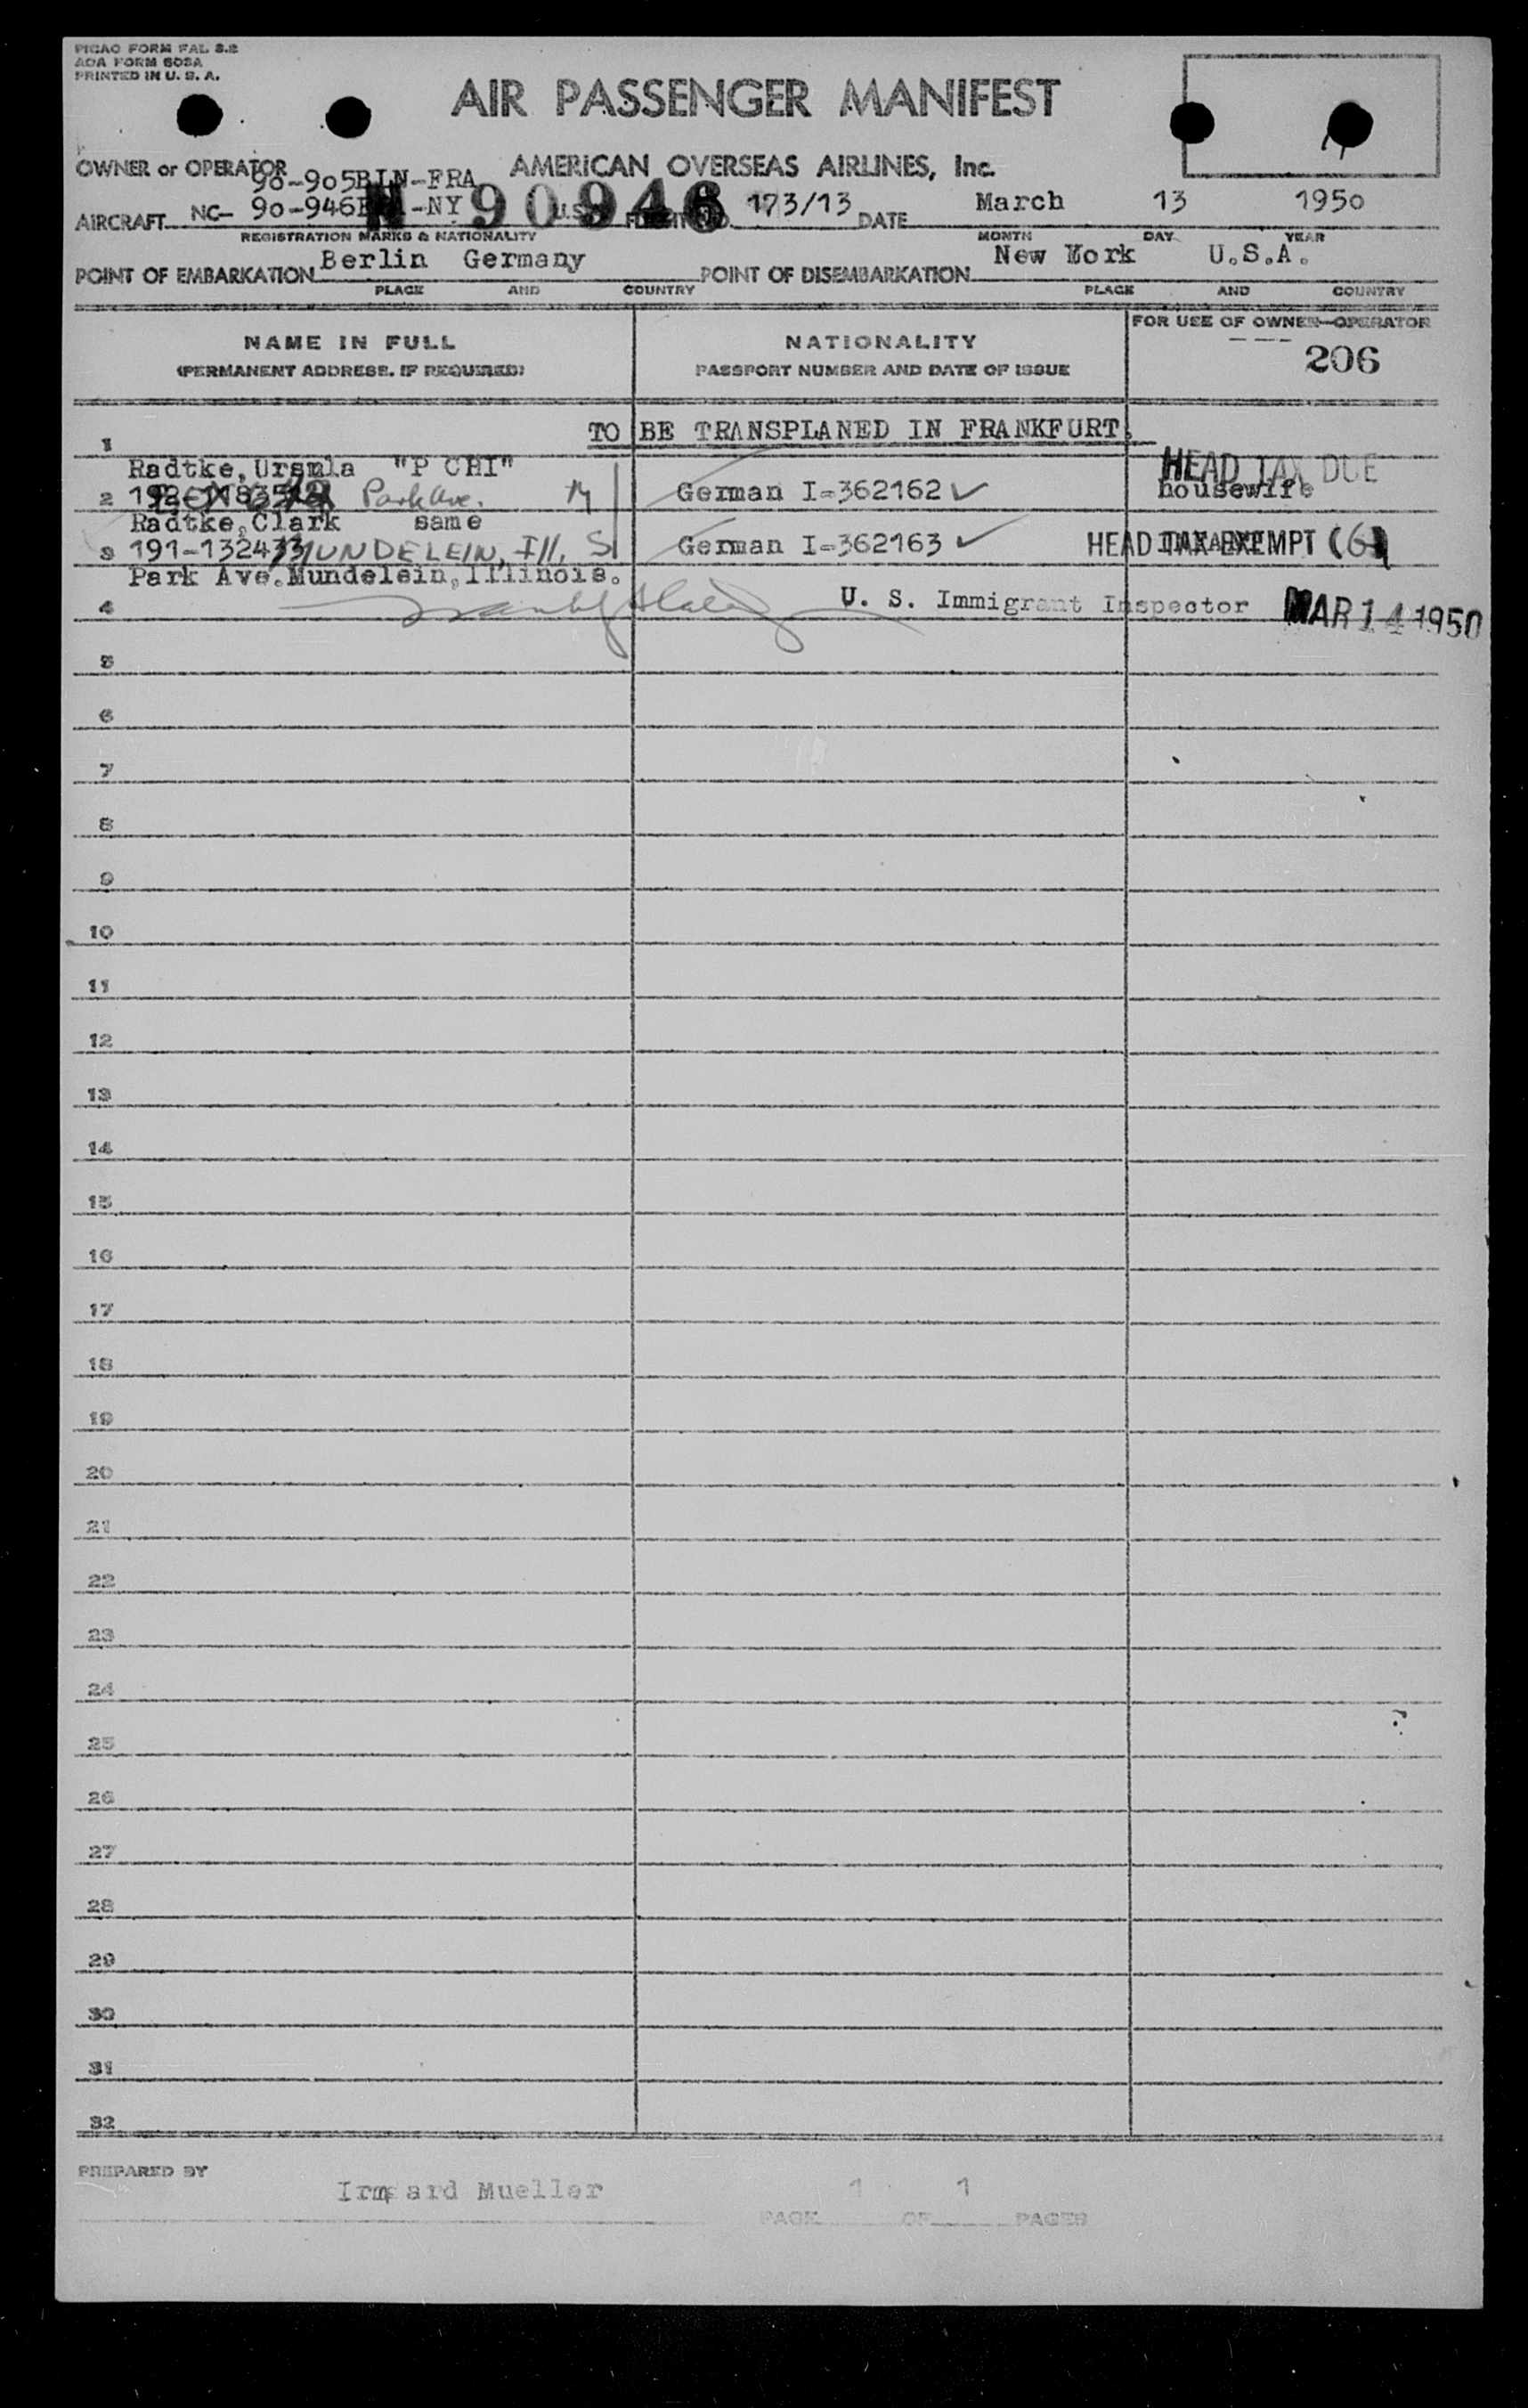 PICAO FORM FAL 3.2
AOA FORM 603A
PRINTED IN U. S. A.
AIR PASSENGER MANIFEST
OWNER or OPERATOR AMERICAN OVERSEAS AIRLINES, Inc.
90-905BLN-FRA
AIRCRAFT NC- 90-946 -NY N 90946 U.S. 173/13 DATE March 13 1950
REGISTRATION MARKS & NATIONALITY MONTH DAY YEAR
POINT OF EMBARKATION Berlin Germany POINT OF DISEMBARKATION New York U.S.A.
PLACE AND COUNTRY PLACE AND COUNTRY
NAME IN FULL NATIONALITY FOR USE OF OWNER-OPERATOR
(PERMANENT ADDRESS, IF REQUIRED) PASSPORT NUMBER AND DATE OF ISSUE 206
1 TO BE TRANSPLANED IN FRANKFURT.
Radtke, Ursula "P CHI" HEAD TAX DUE
2 Park Ave. M German I-362162 housewife
Radtke, Clark same
3 191-132433 MUNDELEIN, Ill, S German I-362163 HEAD TAX EXEMPT (6)
Park Ave. Mundelein, Illinois.
4 U. S. Immigrant Inspector MAR 14 1950
5
6
7
8
9
10
11
12
13
14
15
16
17
18
19
20
21
22
23
24
25
26
27
28
29
30
31
32
PREPARED BY Irmgard Mueller PAGE 1 OF 1 PAGES